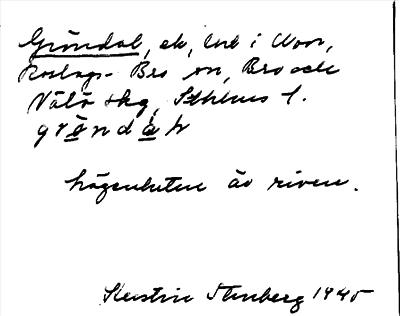 Gröndal, ek, lul i Uvor,
Roslags-Bro sn, Bro och
Vätö skg, Sthlms l.
gröndáʼl
lägenheten är riven.
Kerstin Stenberg 1945